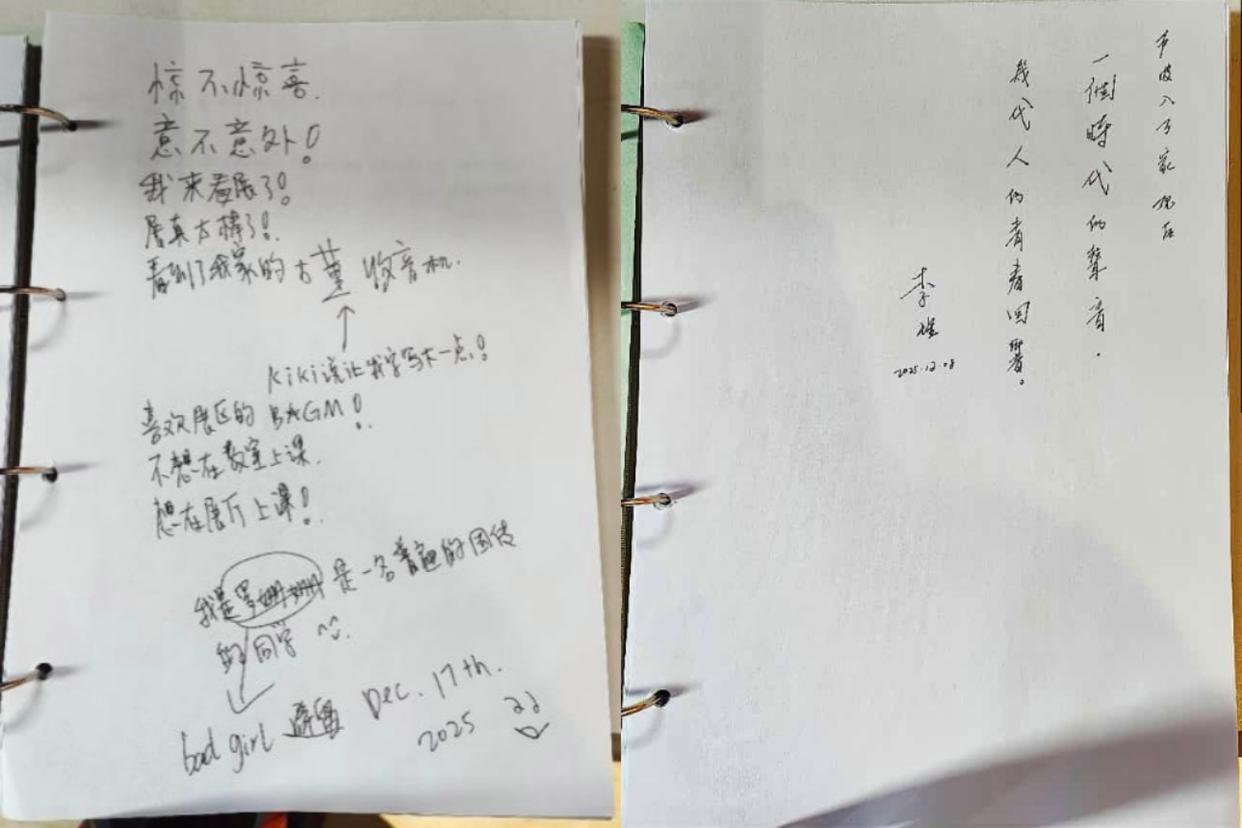 惊不惊喜.
意不意外!
我来看展了!
展真太棒了!.
看到了我家的古董收音机.
kiki说让我字写大一点!
喜欢展区的 BGM!.
不想在教室上课.
想在展厅上课!.
我是 是一名普通的国传
的同学 ^^.
bad girl Dec. 17th.
2025
声波入万家
一個時代的聲音.
幾代人的青春回響。
李
2025.12.08